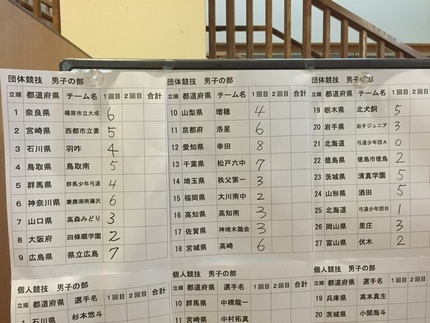 団体競技 男子の部
立順 都道府県 チーム名 1回目 2回目 合計
1 奈良県 橿原市立大成 6
2 宮崎県 西都市立妻 5
3 石川県 羽咋 4
4 鳥取県 鳥取南 5
5 群馬県 群馬少年弓道 4
6 神奈川県 慶應湘南藤沢 6
7 山口県 高森みどり 3
8 大阪府 四條畷学園 2
9 広島県 県立広島 7
団体競技 男子の部
立順 都道府県 チーム名 1回目 2回目 合計
10 山梨県 増穂 4
11 京都府 洛星 6
12 愛知県 幸田 8
13 千葉県 松戸六中 7
14 埼玉県 秩父第一 3
15 福岡県 大川南中 2
16 高知県 高知南 3
17 佐賀県 神埼木鶏会 3
18 宮城県 高崎 6
団体競技 男子の部
立順 都道府県 チーム名 1回目 2回目 合計
19 栃木県 北犬飼 5
20 岩手県 岩手ジュニア 3
21 北海道 弓道少年団A 0
22 徳島県 徳島市徳島 2
23 茨城県 清真学園 5
24 山形県 酒田 5
25 北海道 弓道少年団B 1
26 岡山県 里庄 3
27 富山県 伏木 2
個人競技 男子の部
立順 都道府県 選手名 1回目 2回目 合計
1 石川県 杉本悠斗
個人競技 男子の部
立順 都道府県 選手名 1回目 2回目 合計
10 群馬県 中橋龍一
11 宮崎県 中村拓真
個人競技 男子の部
立順 都道府県 選手名 1回目 2回目 合計
19 兵庫県 高本真生
20 茨城県 小関海斗